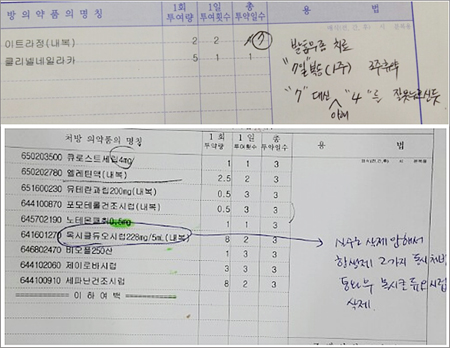 방 의약품의 명칭 1회투여량 1일투여횟수 총투약일수 용 법
이트라정(내복) 2 2 4 7
클리넬네일라카 5 1 1
발톱무좀 치료
"7일" 복용(1주) 3주휴약
"7" 대신 "4"를 잘못누르신듯
아래
처방 의약품의 명칭 1회투약량 1일투여횟수 총투약일수 용 법
650203500 큐로스트세립4mg 1 1 3
650202780 엘레틴액(내복) 2.5 2 3
651600230 유테란과립200mg(내복) 0.5 3 3
644100870 포모테롤건조시럽(내복) 0.5 3 3
645702190 노테몬패취0.5mg 1 1 3
641601270 목시클듀오시럽228mg/5mL(내복) 8 2 3
646802470 비오플250산 1 3 3
644102060 제이로바시럽 3 3 3
644100910 세파난건조시럽 8 2 3
======== 이 하 여 백 ========
삭제 안해서
항생제 2가지 동시처방
통화후 목시클듀오시럽
삭제.